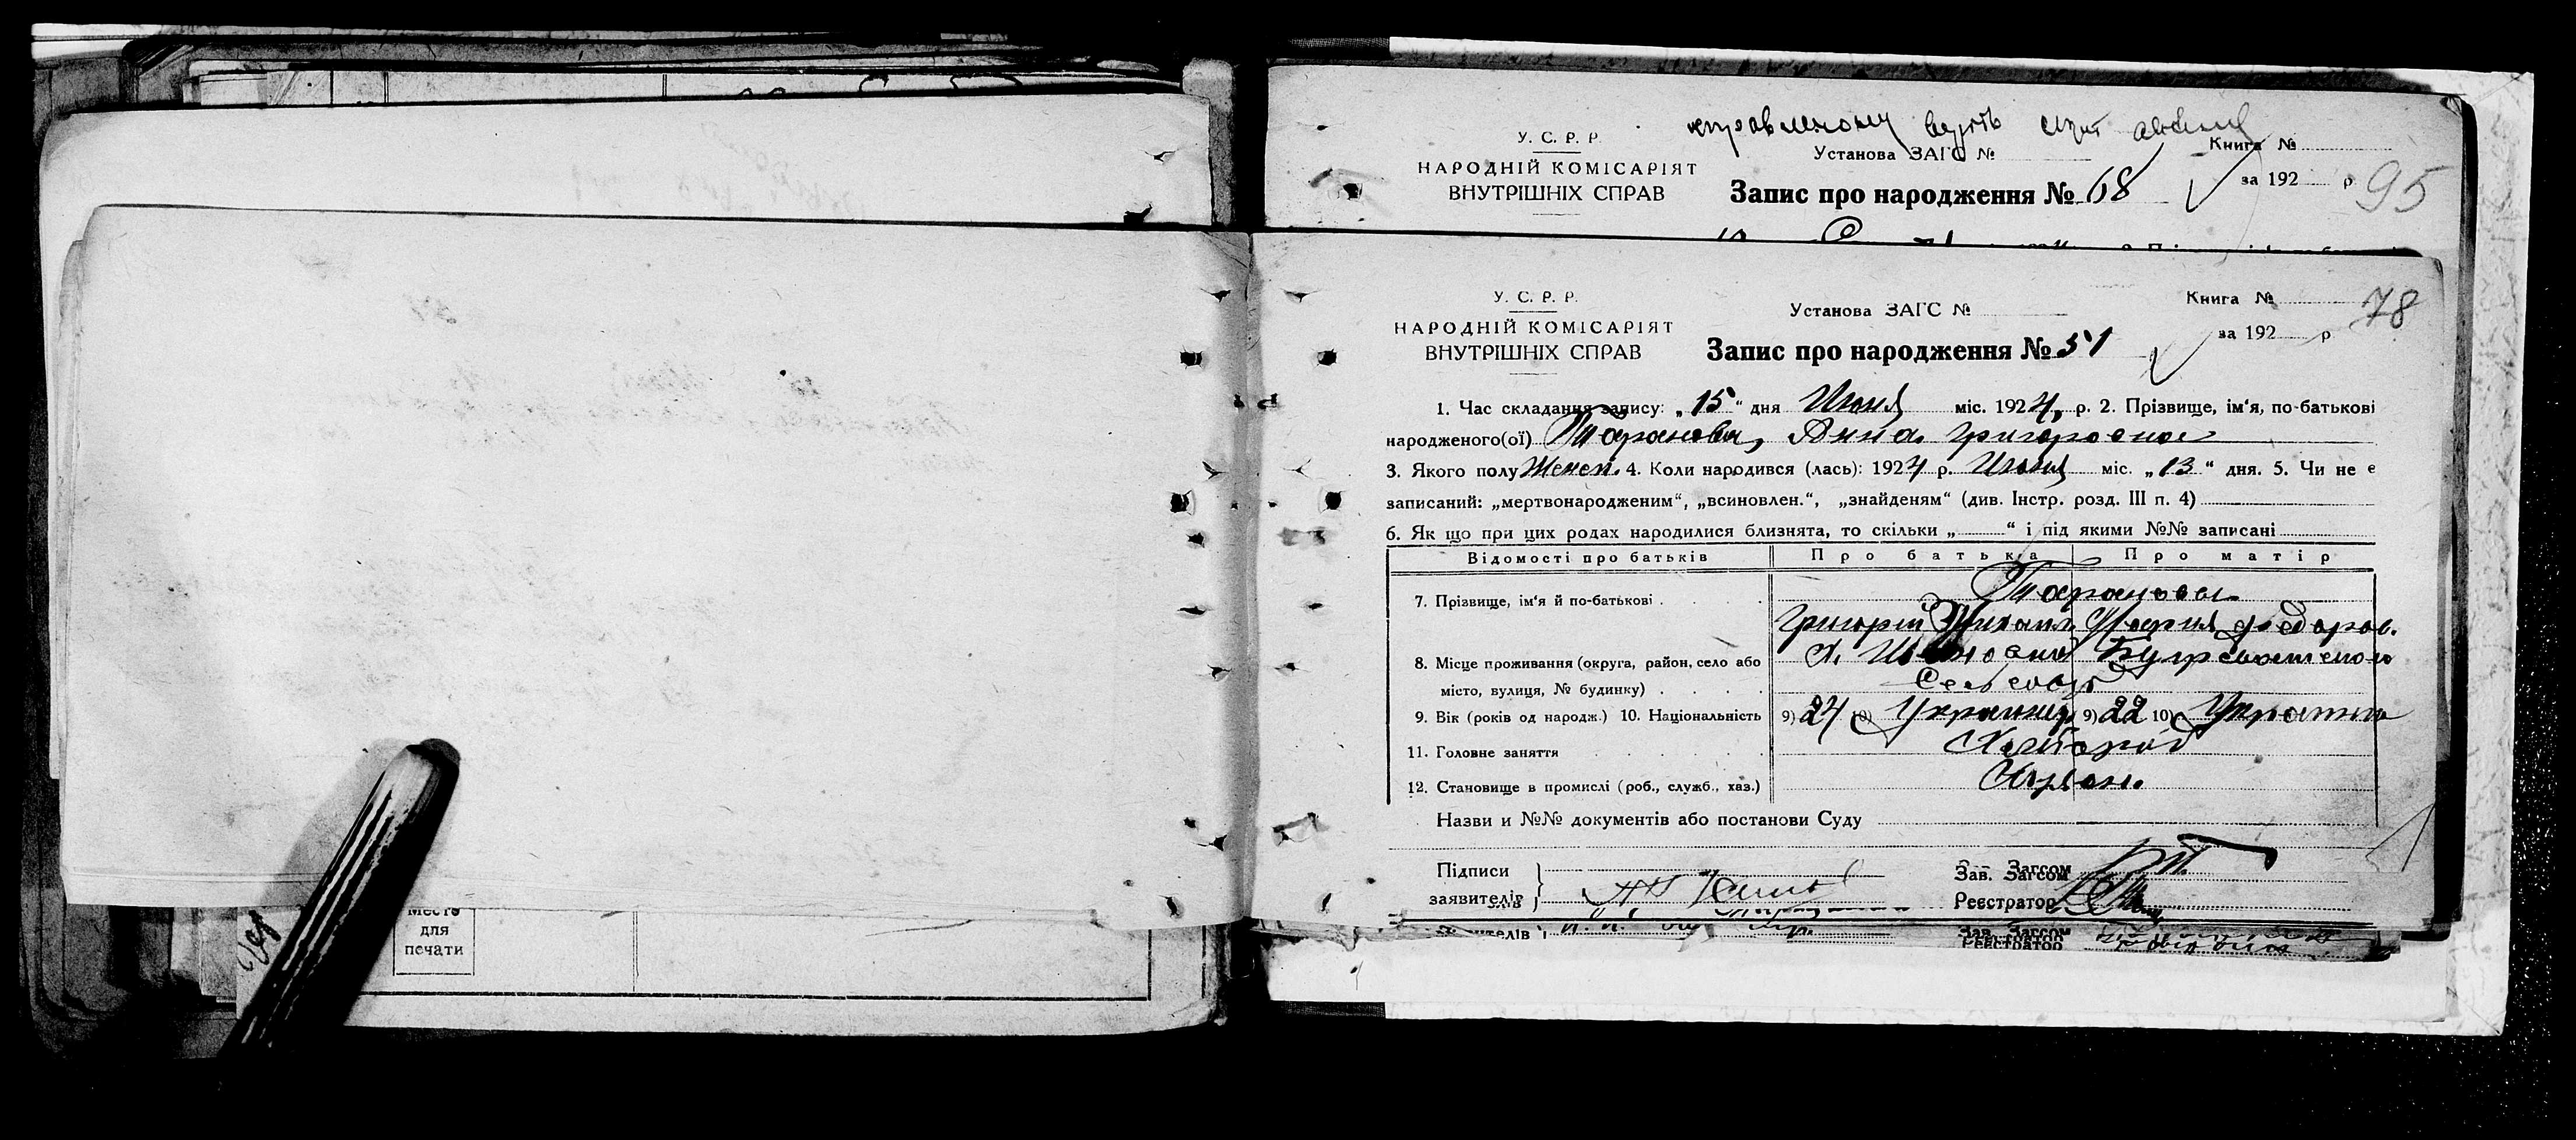 У. С. Р. Р.
НАРОДНІЙ КОМІСАРІЯТ
ВНУТРІШНІХ СПРАВ
Установа ЗАГС №
Книга №
Запис про народження № 68
за 192 р
95
У. С. Р. Р.
НАРОДНІЙ КОМІСАРІЯТ
ВНУТРІШНІХ СПРАВ
Установа ЗАГС №
Книга №
78
Запис про народження № 51
за 192 р
1. Час складання запису: „15“ дня Июня міс. 1924, р. 2. Прізвище, ім‘я, по-батькові
народженого(ої) Таранова, Анна Григоровна
3. Якого полу Женск. 4. Коли народився (лась): 1924 р. Июня міс. „13“ дня. 5. Чи не є
записаний: „мертвонародженим“, „всиновлен.“, „знайденям“ (див. Інстр. розд. III п. 4)
6. Як що при цих родах народилися близнята, то скільки „ “ і під якими №№ записані
Відомості про батьків Про батька Про матір
7. Прізвище, ім‘я й по-батькові Тарановы
Григорий Михаил. Мария Федоров.
8. Місце проживання (округа, район, село або
місто, вулиця, № будинку)
Сельсов
9. Вік (років од народж.) 10. Національність 9) 24 10) Украинец 9) 22 10) Украинка
11. Головне заняття Хлебороб
12. Становище в промислі (роб., служб., хаз.) Хозяин.
Назви и №№ документів або постанови Суду
Підписи
заявителів
Зав. Загсом
Реєстратор
Зав. Загсом
Реєстратор
Место
для
печати